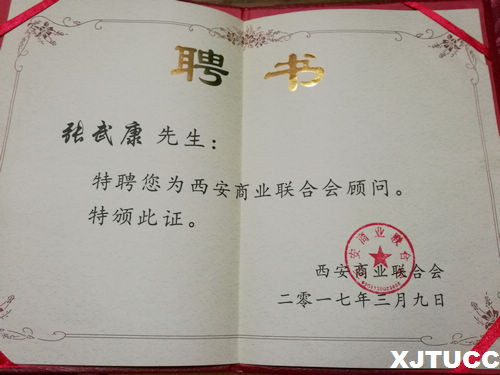 聘书
张武康 先生：
特聘您为西安商业联合会顾问。
特颁此证。
西安商业联合会
西安商业联合会
二零一七年三月九日
XJTUCC